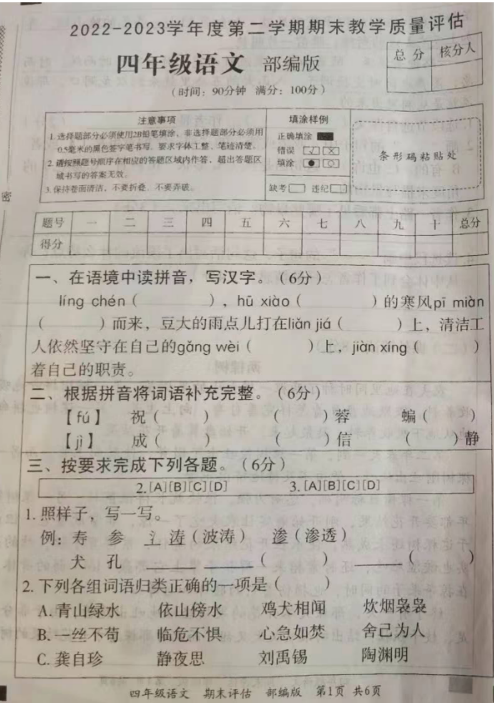 2022-2023学年度第二学期期末教学质量评估
四年级语文 部编版
总分 核分人
(时间：90分钟 满分：100分)
注意事项
1.选择题部分必须使用2B铅笔填涂，非选择题部分必须用
0.5毫米的黑色签字笔书写，要求字体工整、笔迹清楚。
2.请按照题号顺序在相应的答题区域内作答，超出答题区
域书写的答案无效。
3.保持卷面清洁，不要折叠、不要弄破。
填涂样例
正确填涂
错误
填涂
缺考 违纪
条形码粘贴处
密
题号 一 二 三 四 五 六 七 八 九 十 总分
得分
一、在语境中读拼音，写汉字。（6分）
líng chén（ ），hū xiào（ ）的寒风pī miàn
（ ）而来，豆大的雨点儿打在liǎn jiá（ ）上，清洁工
人依然坚守在自己的gǎng wèi（ ）上，jiàn xíng（ ）
着自己的职责。
二、根据拼音将词语补充完整。（6分）
【fú】 祝（ ） （ ）蓉 蝙（ ）
【jì】 成（ ） （ ）信 （ ）静
三、按要求完成下列各题。（6分）
2.[A][B][C][D] 3.[A][B][C][D]
1.照样子，写一写。
例：寿 参 氵 涛（波涛） 渗（渗透）
犬 孔 ___ ___（ ） ___（ ）
2.下列各组词语归类正确的一项是（ ）
A.青山绿水 依山傍水 鸡犬相闻 炊烟袅袅
B.一丝不苟 临危不惧 心急如焚 舍己为人
C.龚自珍 静夜思 刘禹锡 陶渊明
四年级语文 期末评估 部编版 第1页 共6页